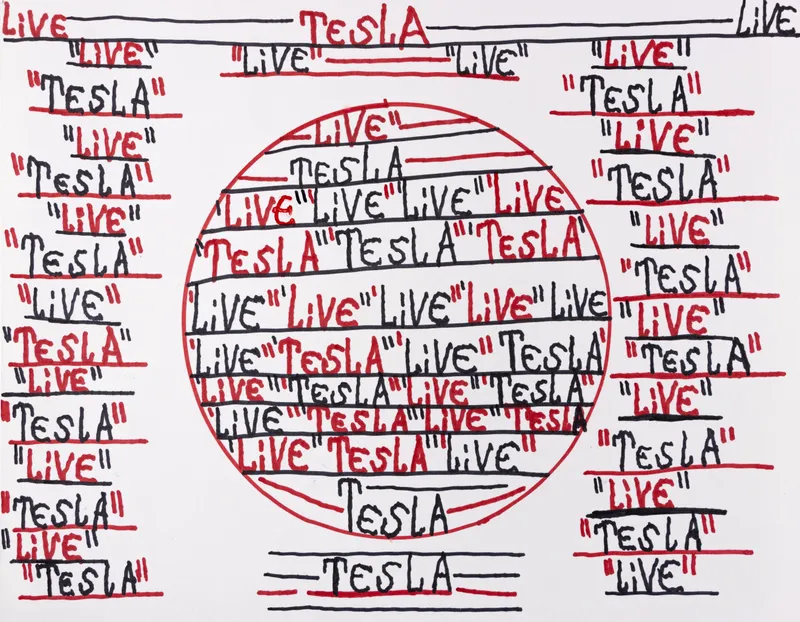 LiVE TESLA LiVE
"LiVE"
"TESLA"
"LiVE"
"TESLA"
"LiVE"
"TESLA"
"LiVE"
"TESLA"
"LiVE"
"TESLA"
"LiVE"
"TESLA"
"LiVE"
"TESLA"
"LiVE" "LiVE"
"LiVE"
TESLA
"LiVE" "LiVE" "LiVE" "LiVE
"TESLA" "TESLA" "TESLA"
"LiVE" "LiVE" "LiVE" "LiVE" "LiVE
"LiVE" "TESLA" "LiVE" "TESLA"
"LiVE" "TESLA" "LiVE" "TESLA"
"LiVE" "TESLA" "LiVE" "TESLA
"LiVE" "TESLA" "LiVE"
TESLA
TESLA
"LiVE"
"TESLA"
"LiVE"
"TESLA"
"LiVE"
"TESLA"
"LiVE"
"TESLA"
"LiVE"
"TESLA"
"LiVE"
"TESLA"
"LiVE"